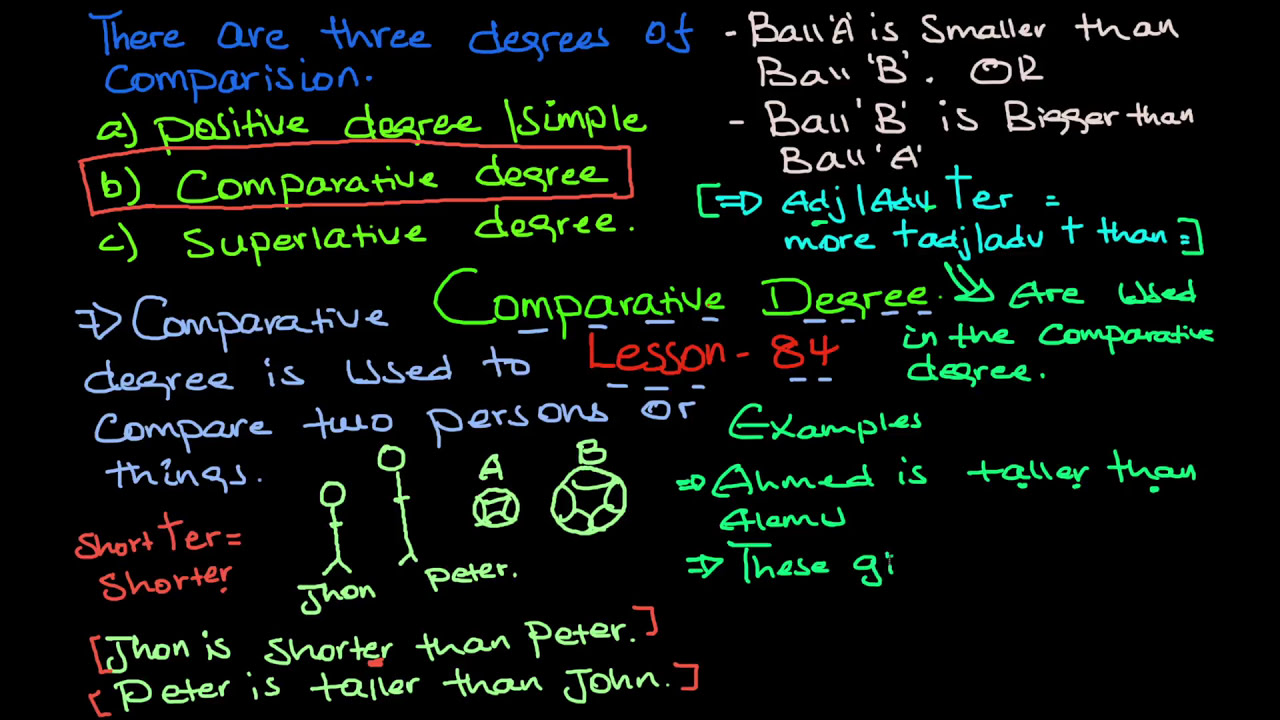 There are three degrees of
Comparision.
a) positive degree |simple
b) Comparative degree
c) Superlative degree.
Comparative Degree.
Lesson - 84
⇒ Comparative
degree is used to
Compare two persons or
things.
A
B
Jhon
peter.
Short + er =
Shorter
[Jhon is shorter than Peter.]
[Peter is taller than John.]
- Ball 'A' is Smaller than
Ball 'B'. OR
- Ball 'B' is Bigger than
Ball 'A'
[⇒ Adj|Adv + er =
more + adj|adv + than =]
Are used
in the Comparative
degree.
Examples
⇒ Ahmed is taller than
Alemu
⇒ These gi